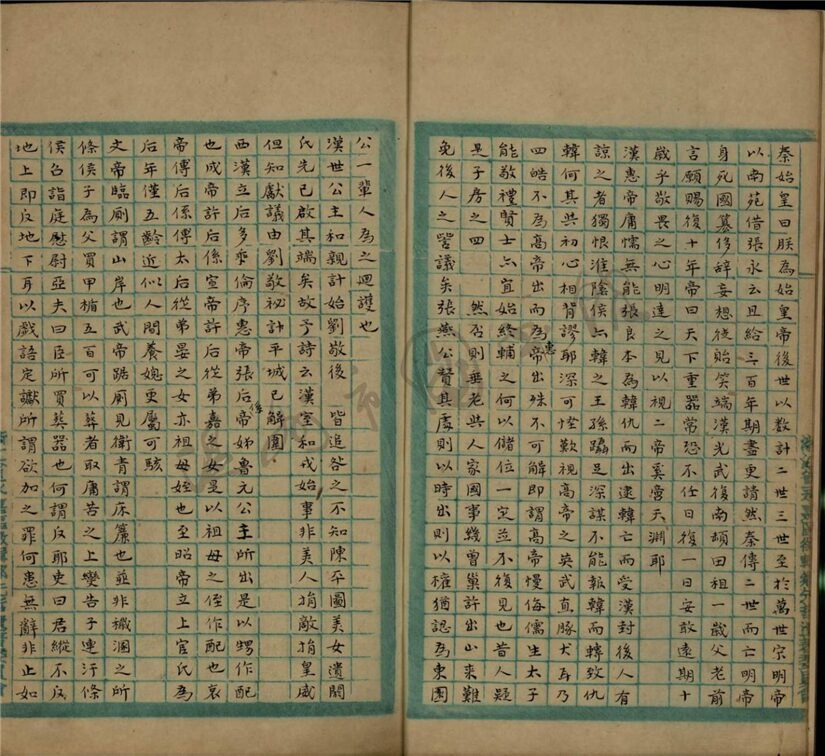 秦始皇曰朕為始皇帝後世以數計二世三世至於萬世宗明帝
以南苑借張永云且給三百年期盡更請然秦傳二世而亡明帝
身死國篡侈辭妄想徒貽笑端漢光武復南頓田租一歲父老前
言願賜復十年帝曰天下重器常恐不任日復一日安敢遠期十
歲乎敬畏之心明達之見以視二帝奚啻天淵耶
漢惠帝庸懦無能張良本為韓仇而出逮韓亡而受漢封後人有
諒之者獨恨淮陰侯亦韓之王孫躡足深謀不能報韓而轉致仇
韓何其與初心相背謬耶深可怪歎視高帝之英武直豚犬耳乃
四皓不為高帝出而為惠帝出殊不可解即謂高帝慢侮儒生太子
能敬禮賢士亦宜始終輔之何以儲位一定並不復見也昔人疑
是子房之四 然否則垂老與人家國事幾曾巢許出山來難
免後人之訾議矣張燕公贊其處則以時出則以權猶認為東園
公一輩人為之迴護也
漢世公主和親計始劉敬後 皆追咎之不知陳平圖美女遺閼
氏先已啟其端矣故予詩云漢室和戎始 事非美人捐敵捐皇威
但知獻議由劉敬祕計平城已解圍
西漢立后多乖倫序惠帝張后係帝姊魯元公主所出是以甥作配
也成帝許后係宣帝許后從弟嘉之女是以祖母之侄作配也哀
帝傅后係傅太后從弟晏之女亦祖母姪也至昭帝立上官氏為
后年僅五齡近似人間養媳更屬可駭
文帝臨廁謂山岸也武帝踞廁見衛青謂床簾也並非穢溷之所
條侯子為父買甲楯五百可以葬者取庸苦之上變告子連汙條
侯召詣庭慰尉亞夫曰臣所買葬器也何謂反耶吏曰君縱不反
地上即反地下耳以戲語定讞所謂欲加之罪何患無辭非止如